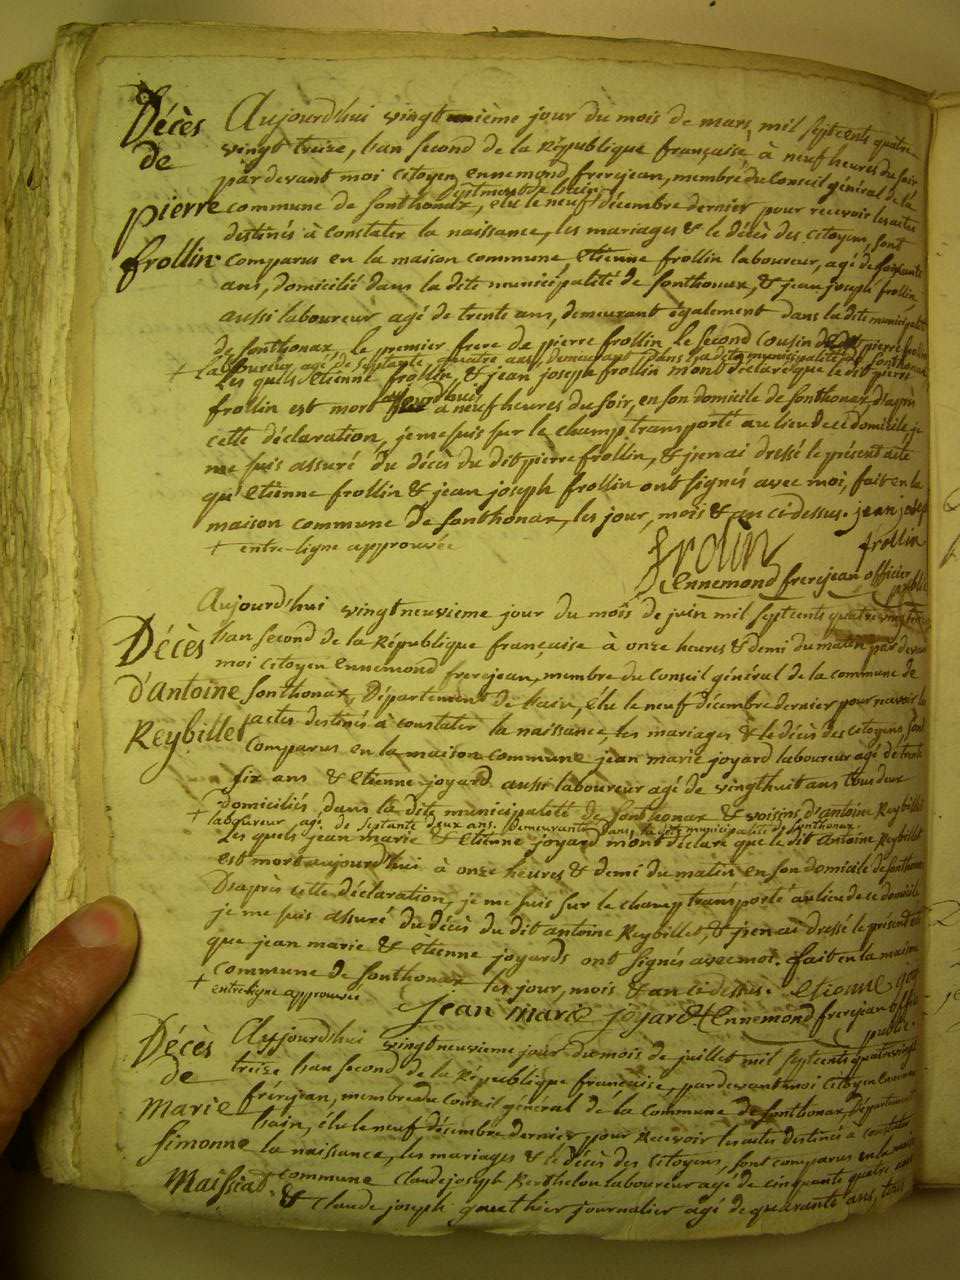 Décès
de
pierre
frollin
Aujourd'hui vingt unième jour du mois de mars mil septcents quatre
vingt treize, l'an second de la République française à neuf heures du soir
pardevant moi citoyen ennemond frerejean, membre du Conseil général de la
département de l'ain
commune de sonthonax, élu le neuf décembre dernier pour recevoir les actes
destinés à constater la naissance, les mariages & le décès des citoyens, sont
comparus en la maison commune etienne frollin laboureur, agé de soixante
ans, domicilié dans la dite municipalité de sonthonax, & jean joseph frollin
aussi laboureur agé de trente ans, demeurant également dans la dite municipalité
de sonthonax, le premier frere de pierre frollin le second cousin de pierre frollin
+ laboureur, agé de septante quatre ans, demeurant dans la dite municipalité de sonthonax
Les quels etienne frollin & jean joseph frollin m'ont déclaré que le dit pierre
aujourd'hui
frollin est mort à neuf heures du soir, en son domicile de sonthonax, d'après
cette déclaration, je me suis sur le champ transporté au lieu de ce domicile, je
me suis assuré du décès du dit pierre frollin, & j'en ai dressé le présent acte
que etienne frollin & jean joseph frollin ont signés avec moi, fait en la
maison commune de sonthonax, les jour, mois & an ci dessus. jean joseph
+ entre-ligne approuvée
frolin
frollin
ennemond frerejean officier
public
Décès
d'Antoine
Reybillet
Aujourd'hui vingt neuvieme jour du mois de juin mil septcents quatre vingt treize
l'an second de la République française à onze heures & demi du matin par devant
moi citoyen ennemond frerejean, membre du Conseil général de la commune de
sonthonax, Département de l'ain, élu le neuf décembre dernier pour recevoir les
actes destinés à constater la naissance, les mariages & le décès des citoyens, sont
comparus en la maison commune jean marie joyard laboureur agé de trente
six ans & etienne joyard aussi laboureur agé de vingthuit ans tous deux
domiciliés dans la dite municipalité de sonthonax & voisins d'antoine Reybillet
+ laboureur, agé de septante deux ans. demeurant dans la dite municipalité de sonthonax.
Les quels jean marie & etienne joyard m'ont déclaré que le dit Antoine Reybillet
est mort aujourd'hui à onze heures & demi du matin en son domicile de sonthonax
D'après cette déclaration, je me suis sur le champ transporté au lieu de ce domicile
je me suis assuré du décès du dit antoine Reybillet, & j'en ai dressé le présent acte
que jean marie & etienne joyards ont signés avec moi. fait en la maison
commune de sonthonax les jour, mois & an ci dessus. etienne
+ entreligne approuvée
jean marie joyard Ennemond frerejean officier
public.
Décès
de
Marie
Simonne
Maissiat
Aujourd'hui vingt neuvieme jour du mois de juillet mil septcents quatre vingt
treize l'an second de la République française, pardevant moi citoyen Ennemond
frérejean, membre du Conseil général de la Commune de sonthonax, Département
l'ain, élu le neuf décembre dernier pour recevoir les actes destinés à constater
la naissance, les mariages & le décès des citoyens, sont comparus en la maison
commune Claude joseph Berthelon laboureur agé de cinquante quatre ans
& Claude joseph gauthier journalier agé de quarante ans, tous